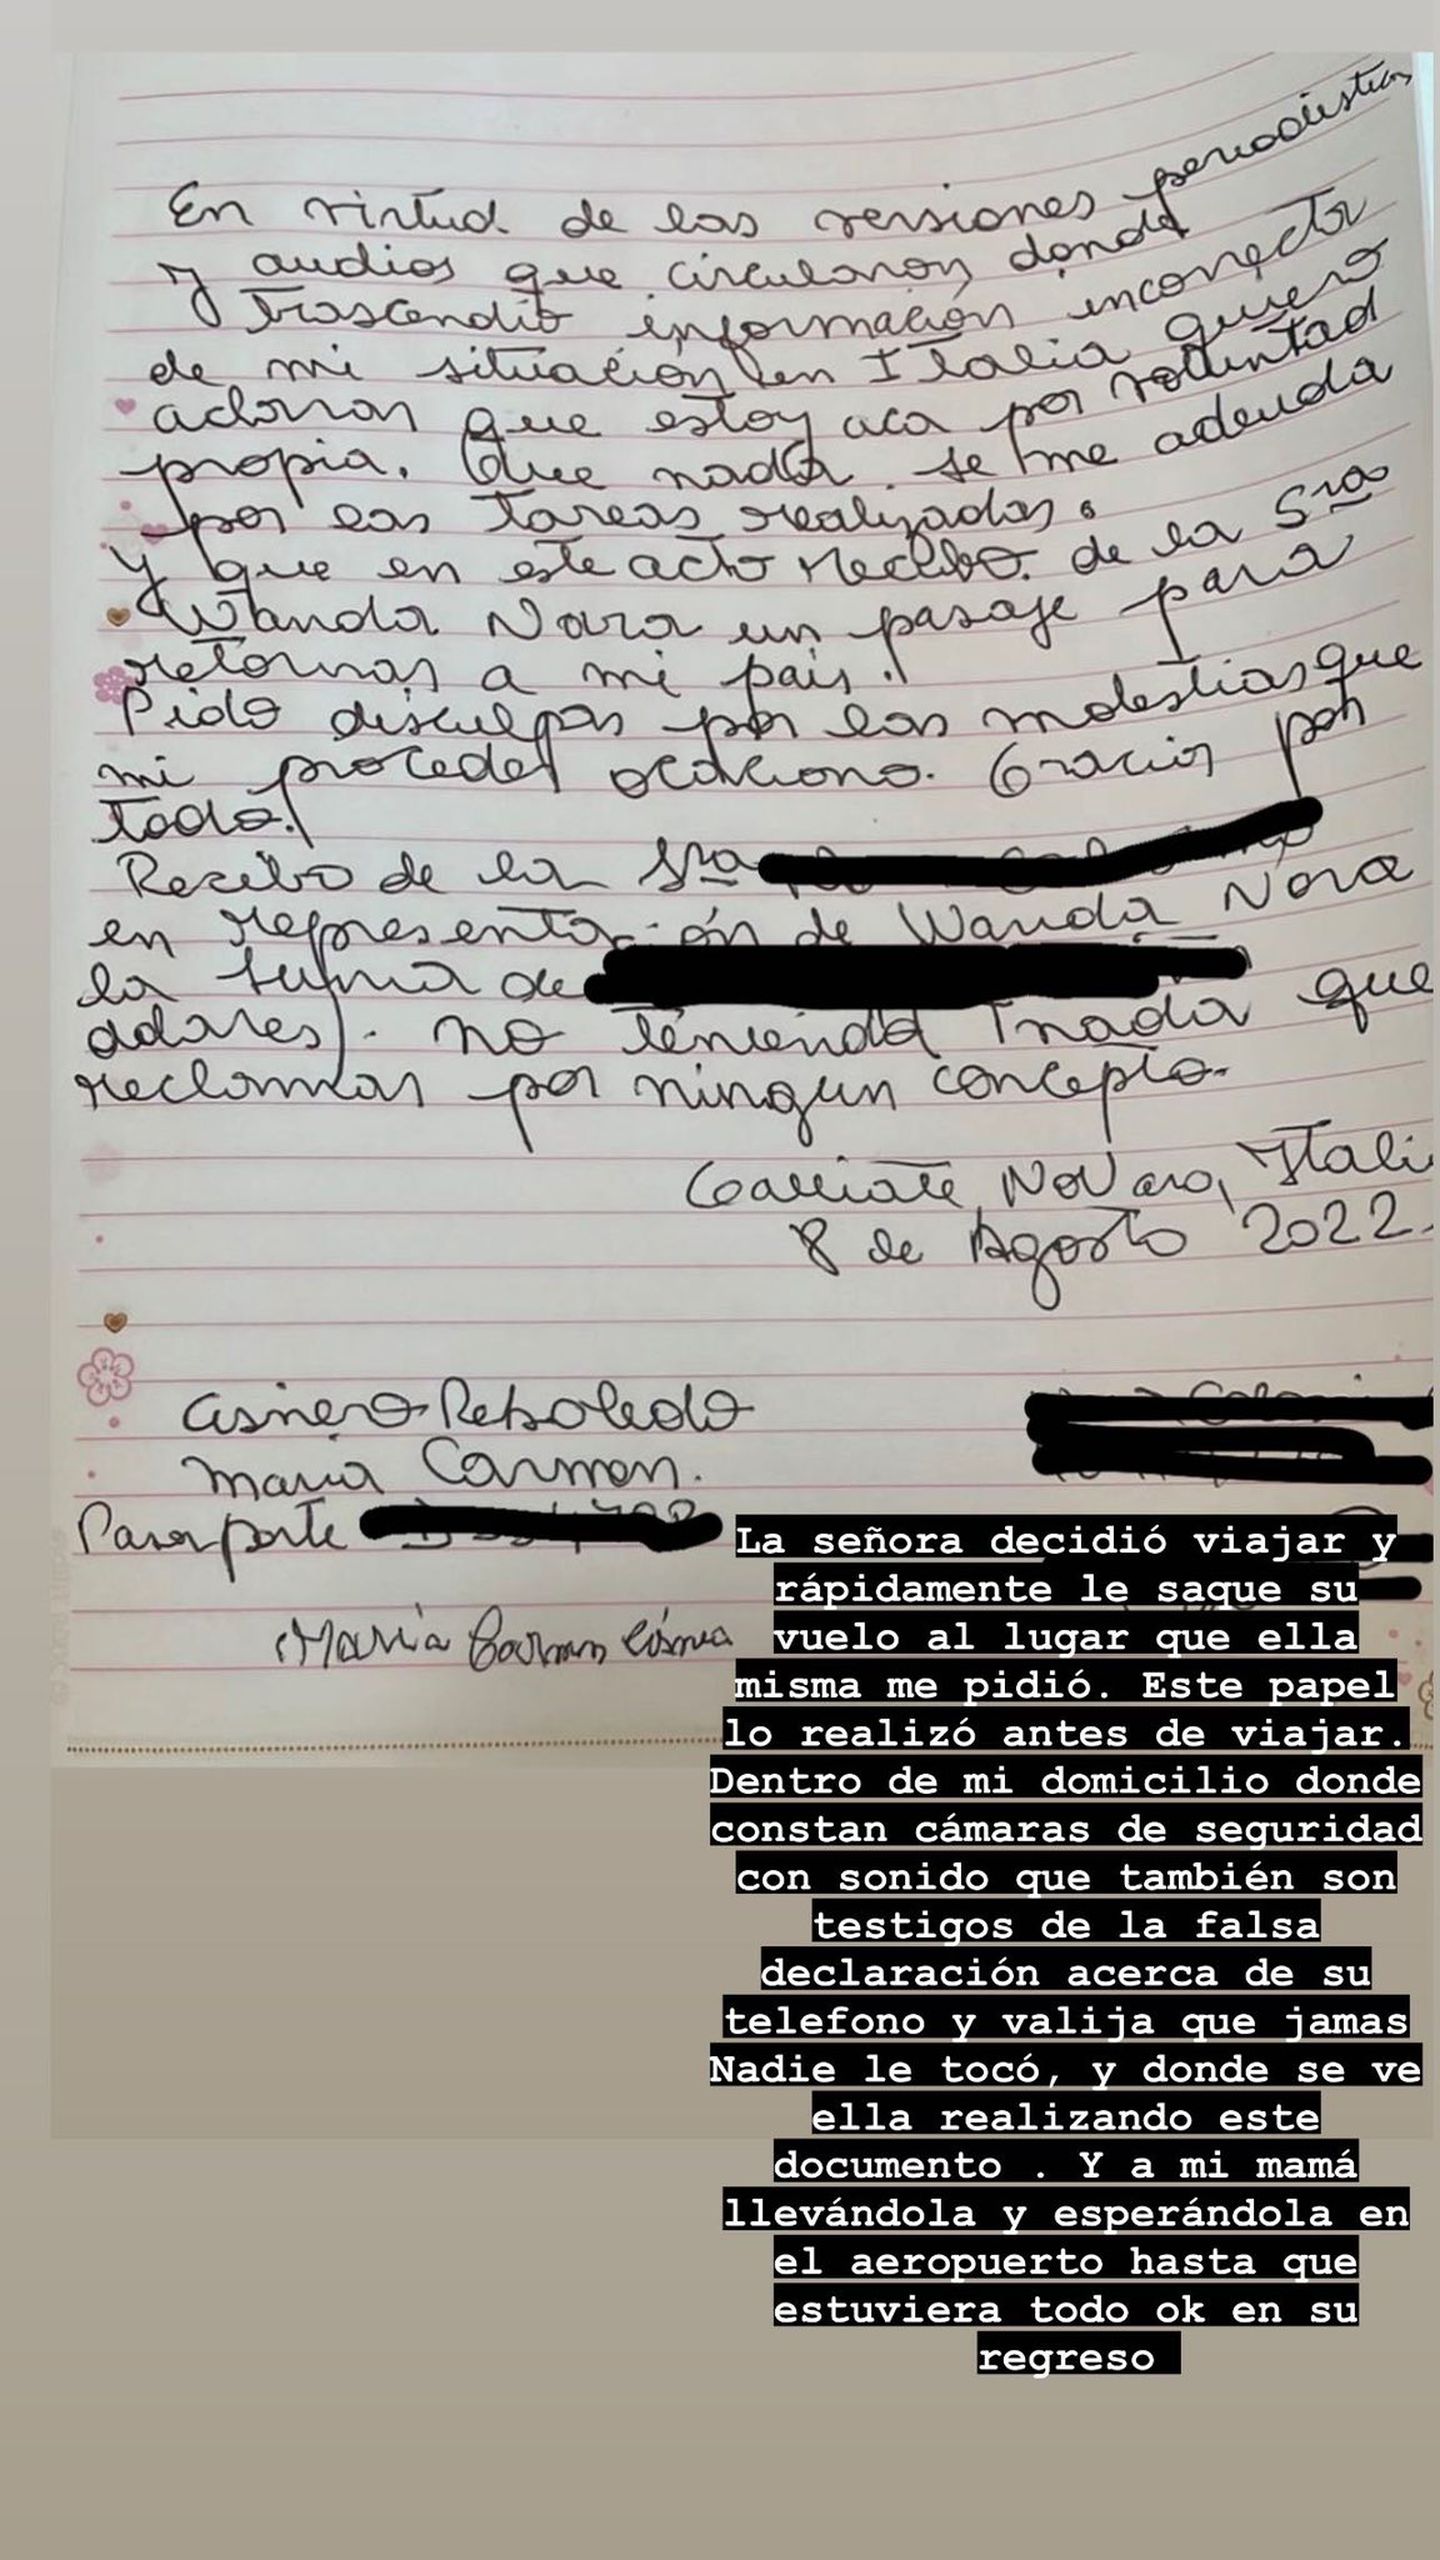 En virtud de las versiones periodisticas
y audios que circularon, donde
trascendió información incorrecta
de mi situación en Italia quiero
aclarar que estoy aca por voluntad
propia. Que nada se me adeuda
por las tareas realizadas.
Y que en este acto recibo de la Sra
Wanda Nara un pasaje para
retornar a mi pais.
Pido disculpas por las molestias que
mi proceder ocaciono. Gracias por
todo.
Recibo de la Sra
en representación de Wanda Nara
la suma de
dolares). no teniendo nada que
reclamar por ningun concepto.
Galliate, Novara, Itali
8 de Agosto 2022.
Cisnero Reboledo
Maria Carmen.
Pasaporte
Maria Carmen Cisnero
La señora decidió viajar y
rápidamente le saque su
vuelo al lugar que ella
misma me pidió. Este papel
lo realizó antes de viajar.
Dentro de mi domicilio donde
constan cámaras de seguridad
con sonido que también son
testigos de la falsa
declaración acerca de su
telefono y valija que jamas
Nadie le tocó, y donde se ve
ella realizando este
documento . Y a mi mamá
llevándola y esperándola en
el aeropuerto hasta que
estuviera todo ok en su
regreso